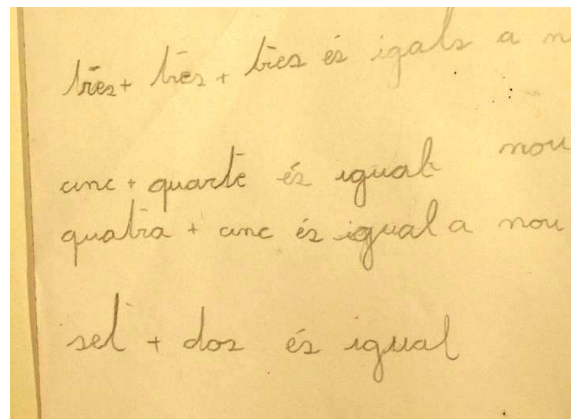 tres + tres + tres és igals a n
cinc + quarte és igual nou
quatra + cinc és igual a nou
set + dos és igual